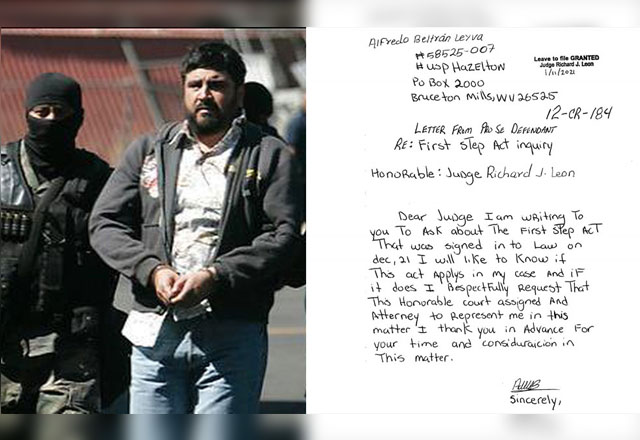 Alfredo Beltrán Leyva
#58525-007
#USP HAZELTON
PO BOX 2000
Bruceton Mills, WV 26525
Leave to file GRANTED
Judge Richard J. Leon
1/11/2021
12-CR-184
LETTER FROM PRO SE DEFENDANT
RE: First Step Act inquiry
Honorable: Judge Richard J. Leon
Dear Judge I am writing To
you To Ask about The First Step ACT
That was signed in to Law on
dec, 21 I will like to Know if
This act applys in my case and if
it does I Respectfully Request That
This Honorable court assigned And
Attorney to Represent me in this
matter I thank you in Advance For
your time and considuraicion in
This matter.
Sincerely,